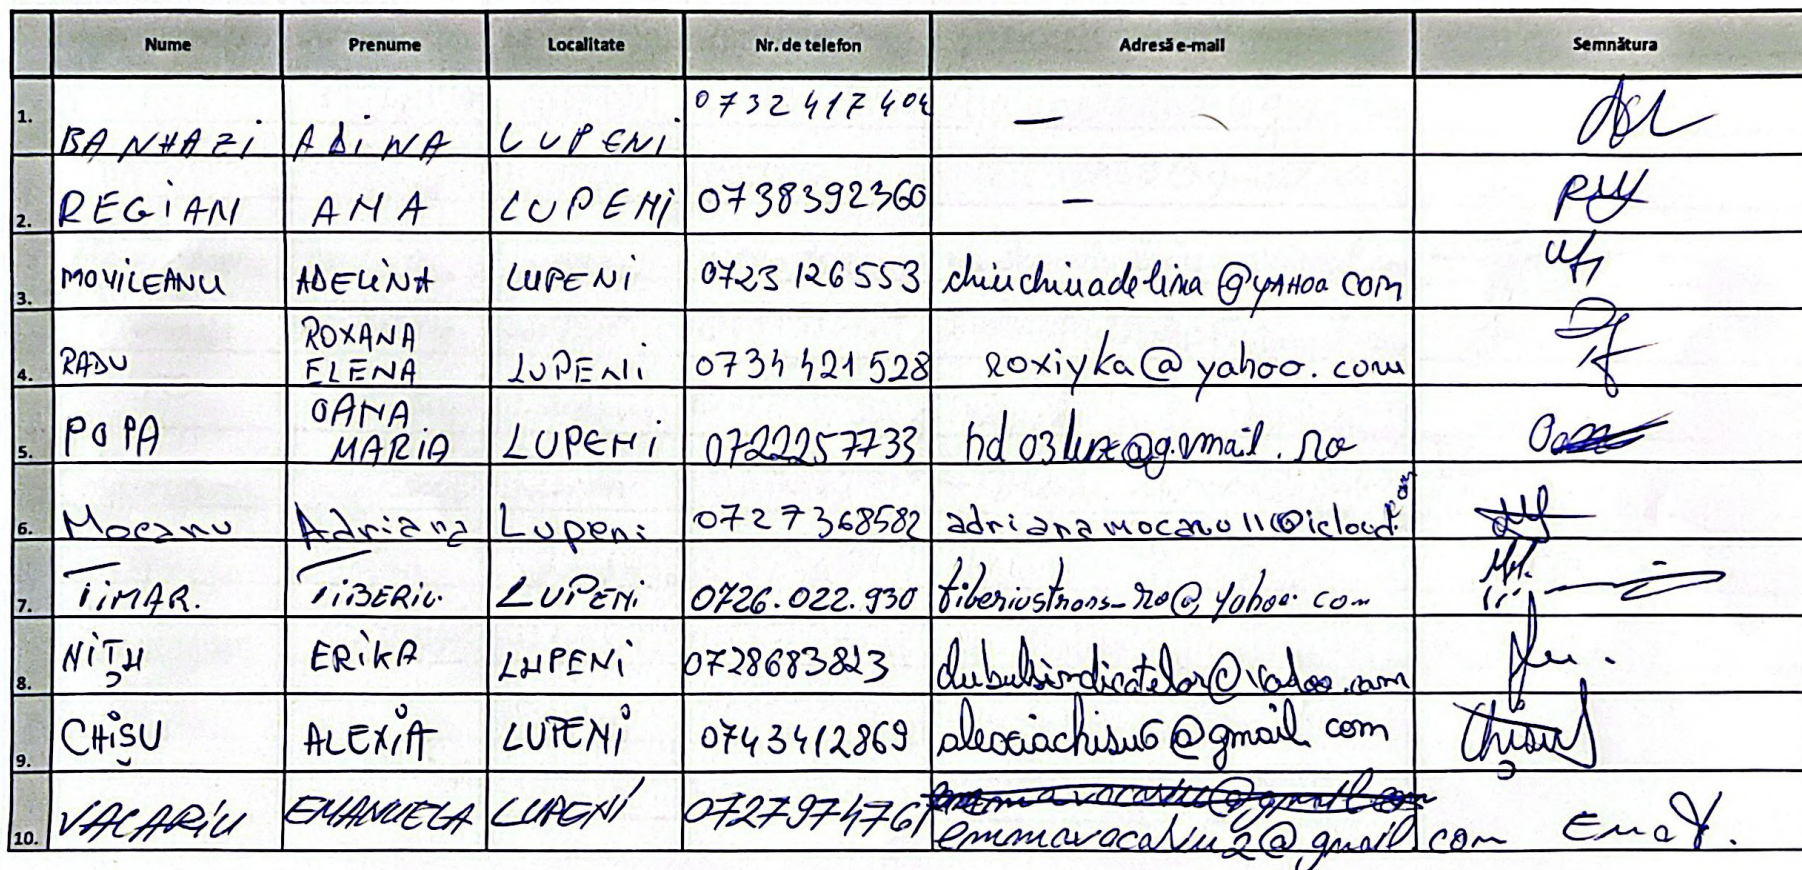 Nume Prenume Localitate Nr. de telefon Adresă e-mail Semnătura
1. BANHAZI ADINA LUPENI 0732417404 —
2. REGIANI ANA LUPENI 0738392360 —
3. MOVILEANU ADELINA LUPENI 0723126553 chiuchiuadelina@yahoo com
4. RADU ROXANA ELENA LUPENI 0734421528 roxiyka@yahoo.com
5. POPA OANA MARIA LUPENI 0722257733
6. Mocanu Adriana Lupeni 0727368582 adrianamocanu11@icloud.com
7. TIMAR. TIBERIU. LUPENI 0726.022.930 tiberiustrans_ro@yahoo.com
8. NIȚU ERIKA LUPENI 0728683823
9. CHIȘU ALEXIA LUPENI 0743412869 alexiachisu6@gmail.com Chișu
10. VACARIU EMANUELA LUPENI 0727974761 emmavacariu2@gmail com